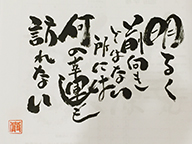 明るく
前向きではない
所には
何の幸運も
訪れない